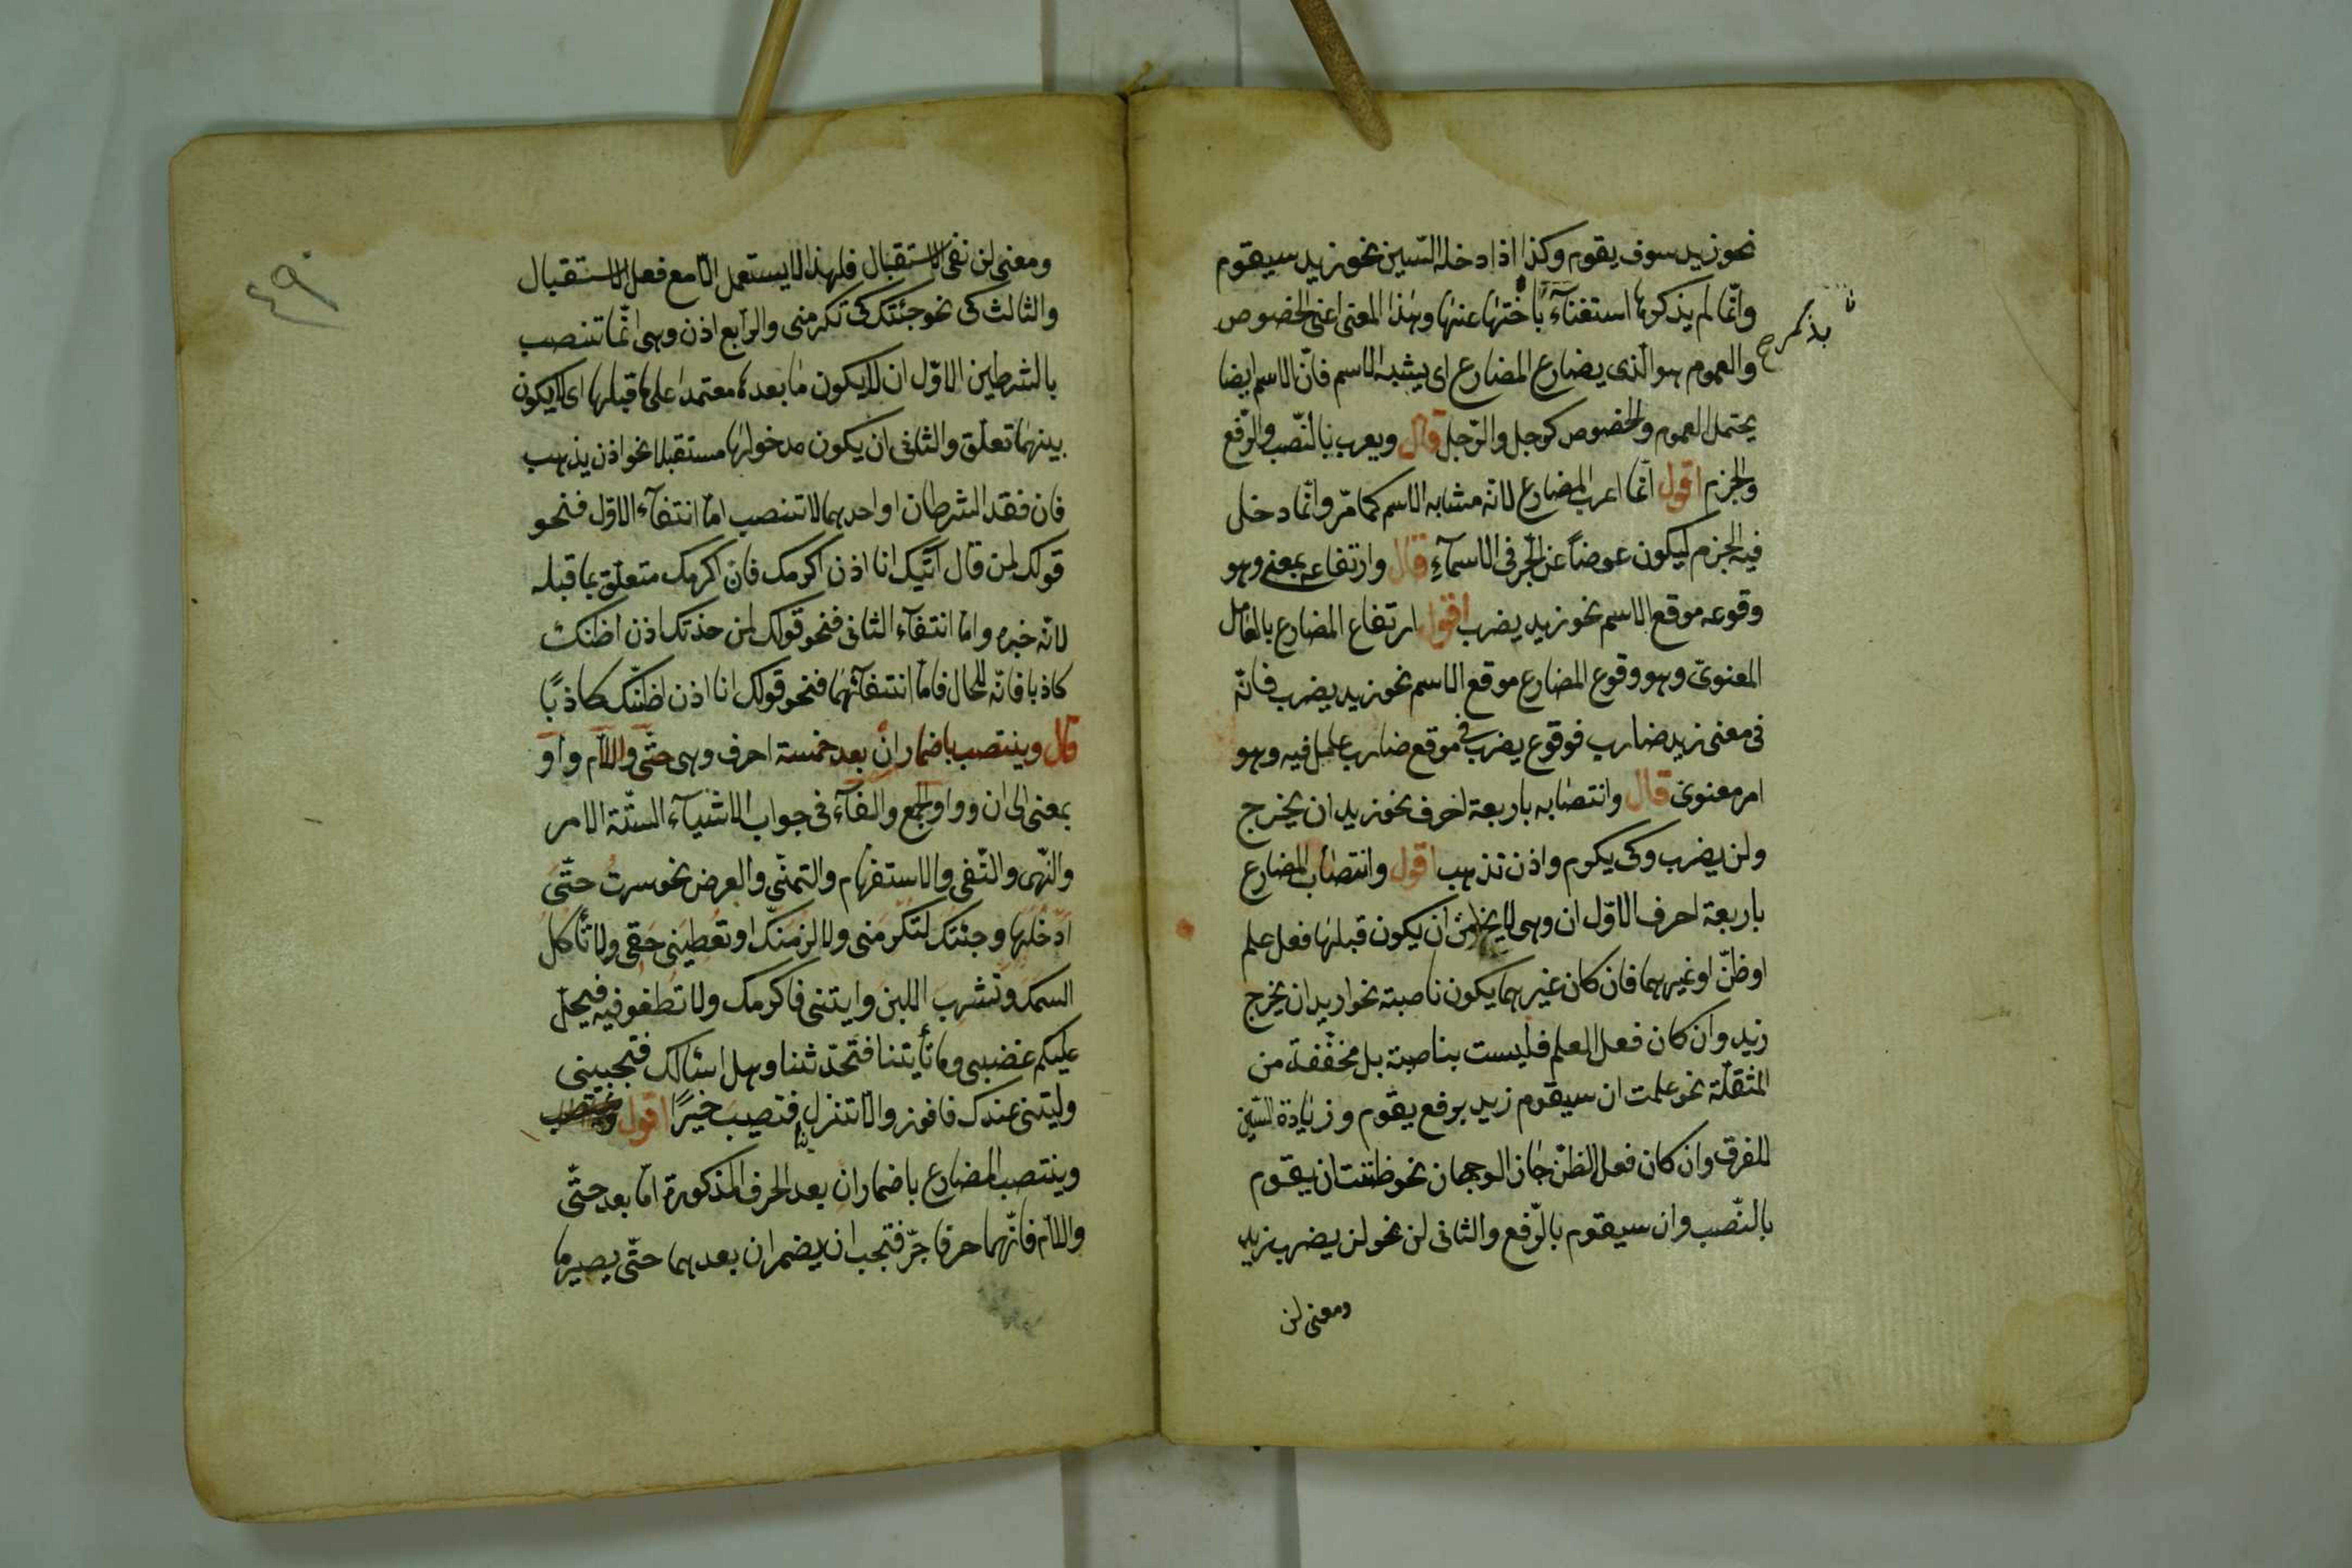 نحو زيد سوف يقوم وكذا اذا دخله السّين نحو زيد سيقوم
وانّما لم يذكرها استغنآءً باختها عنها وبهذا المعنى اعنى الخصوص
بذكر
والعموم هو الّذى يضارع المضارع اى يشبه الاسم فانّ الاسم ايضا
يحتمل العموم والخصوص كرجل والرّجل قال ويعرب بالنّصب والرّفع
والجزم اقول انّما اعرب المضارع لانّه مشابه الاسم كما مرّ وانّما دخل
فيه الجزم ليكون عوضاً عن الجّر فى الاسمآءِ قال وارتفاعه بمعنى وهو
وقوعه موقع الاسم نحو زيد يضرب اقول ارتفاع المضارع بالعامل
المعنوىّ وهو وقوع المضارع موقع الاسم نحو زيد يضرب فانّه
فى معنى زيد ضارب فوقوع يضرب فى موقع ضارب عامل فيه وهو
امر معنوىّ قال وانتصابه باربعة احرف نحو زيد ان يخرج
ولن يضرب وكى يكوم واذن تذهب اقول وانتصاب المضارع
باربعة احرف الاوّل ان وهى لا يخ من ان يكون قبلها فعل علم
او ظنّ او غيرهما فان كان غيرهما يكون ناصبته نحو اريد ان يخرج
زيد وان كان فعل العلم فليست بناصبة بل مخفّفة من
المثقلّة نحو علمت ان سيقوم زيد برفع يقوم وزيادة السّين
للفرق وان كان فعل الظنّ جاز الوجهان نحو ظننت ان يقوم
بالنّصب وان سيقوم بالرّفع والثانى لن نحو لن يضرب زيد
ومعنى لن
٤٩
ومعنى لن نفى الاستقبال فلهذا لا يستعمل الاّ مع فعل الاستقبال
والثالث كى نحو جئتك كى تكرمنى والرّابع اذن وهى انّما تنصب
بالشرطين الاوّل ان لا يكون ما بعدها معتمدا على ما قبلها اى لا يكون
بينهما تعلّق والثانى ان يكون مدخولها مستقبلا نحو اذن يذهب
فان فقد الشرطان او احدهما لا تنصب امّا انتفآء الاوّل فنحو
قولك لمن قال اتيك انا اذن اكرمك فان اكرمك متعلّق بما قبله
لانّه خبره وامّا انتفآء الثانى فنحو قولك لمن حدّثك اذن اظنّك
كاذبا فانّه للحال فامّا انتفآئهما فنحو قولك انا اذن اظنّك كاذبًا
قال وينتصب باضمار ان بعد خمسة احرف وهى حتّى واللاّم واو
بمعنى الى ان وواو الجمع والفآء فى جواب الاشيآء الستّة الامر
والنّهى والنّفى والاستفهام والتمنّى والعرض نحو سرت حتّى
ادخلها وجئتك لتكرمنى ولالزمنّك او تعطينى حقى ولا تأكل
السمك وتشرب اللبن وايتنى فاكرمك ولا تطغو فيه فيحلّ
عليكم غضبى وما تأيتنا فتحدّثنا وهل اسئالك فتجيبنى
وليتنى عندك فافوز والا تنزل بنا فتصيب خيرًا اقول
وينتصب المضارع باضمار ان بعد الحرف المذكورة امّا بعد حتّى
واللاّم فانّهما حرفا جرّ فتجب ان يضمر ان بعدهما حتّى يصير ما